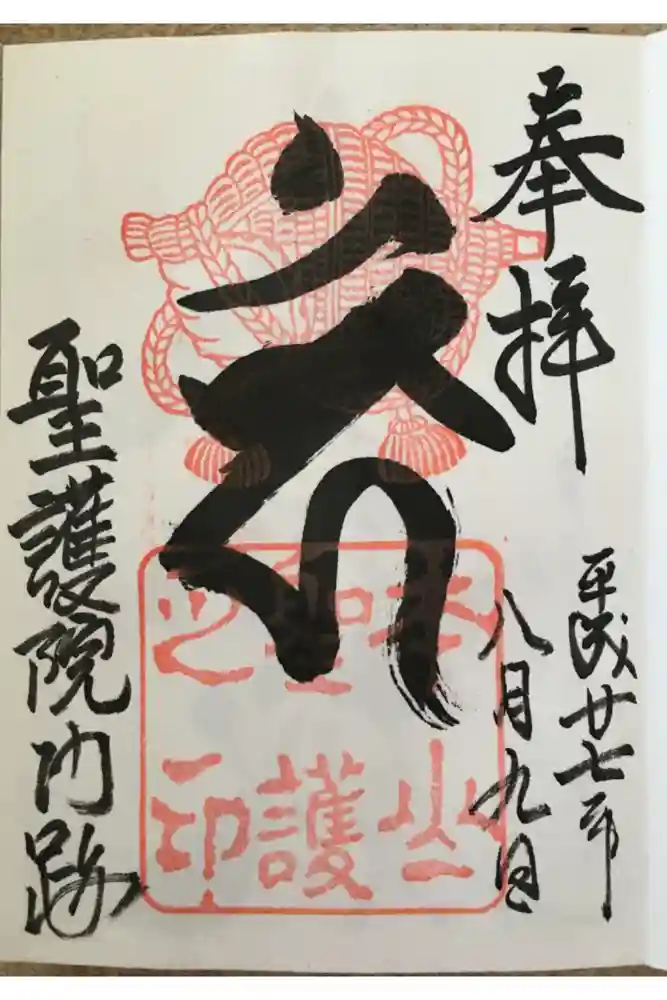 奉拝
平成廿七年
八月九日
本山
聖護
之印
聖護院門跡